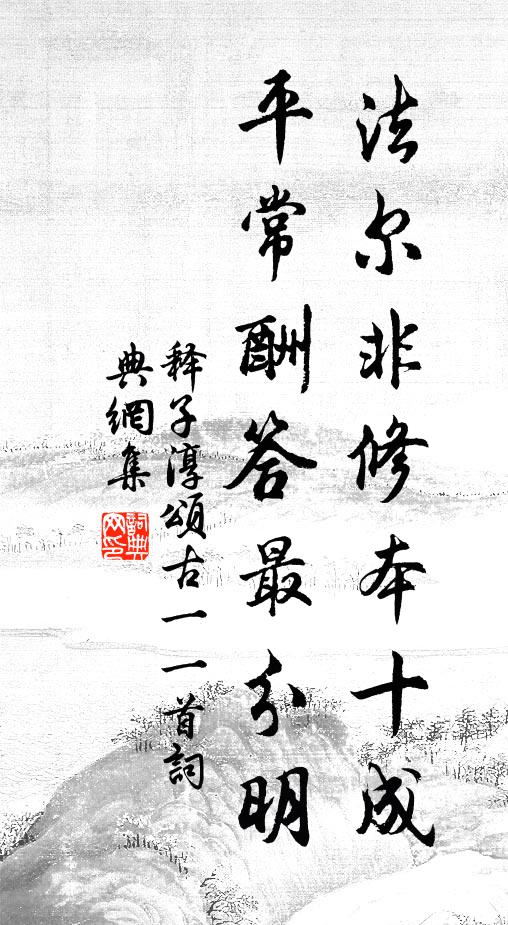 法尔非修本十成
平常酬答最分明
释子淳頌古一一首詞
典網集
詞典
网印